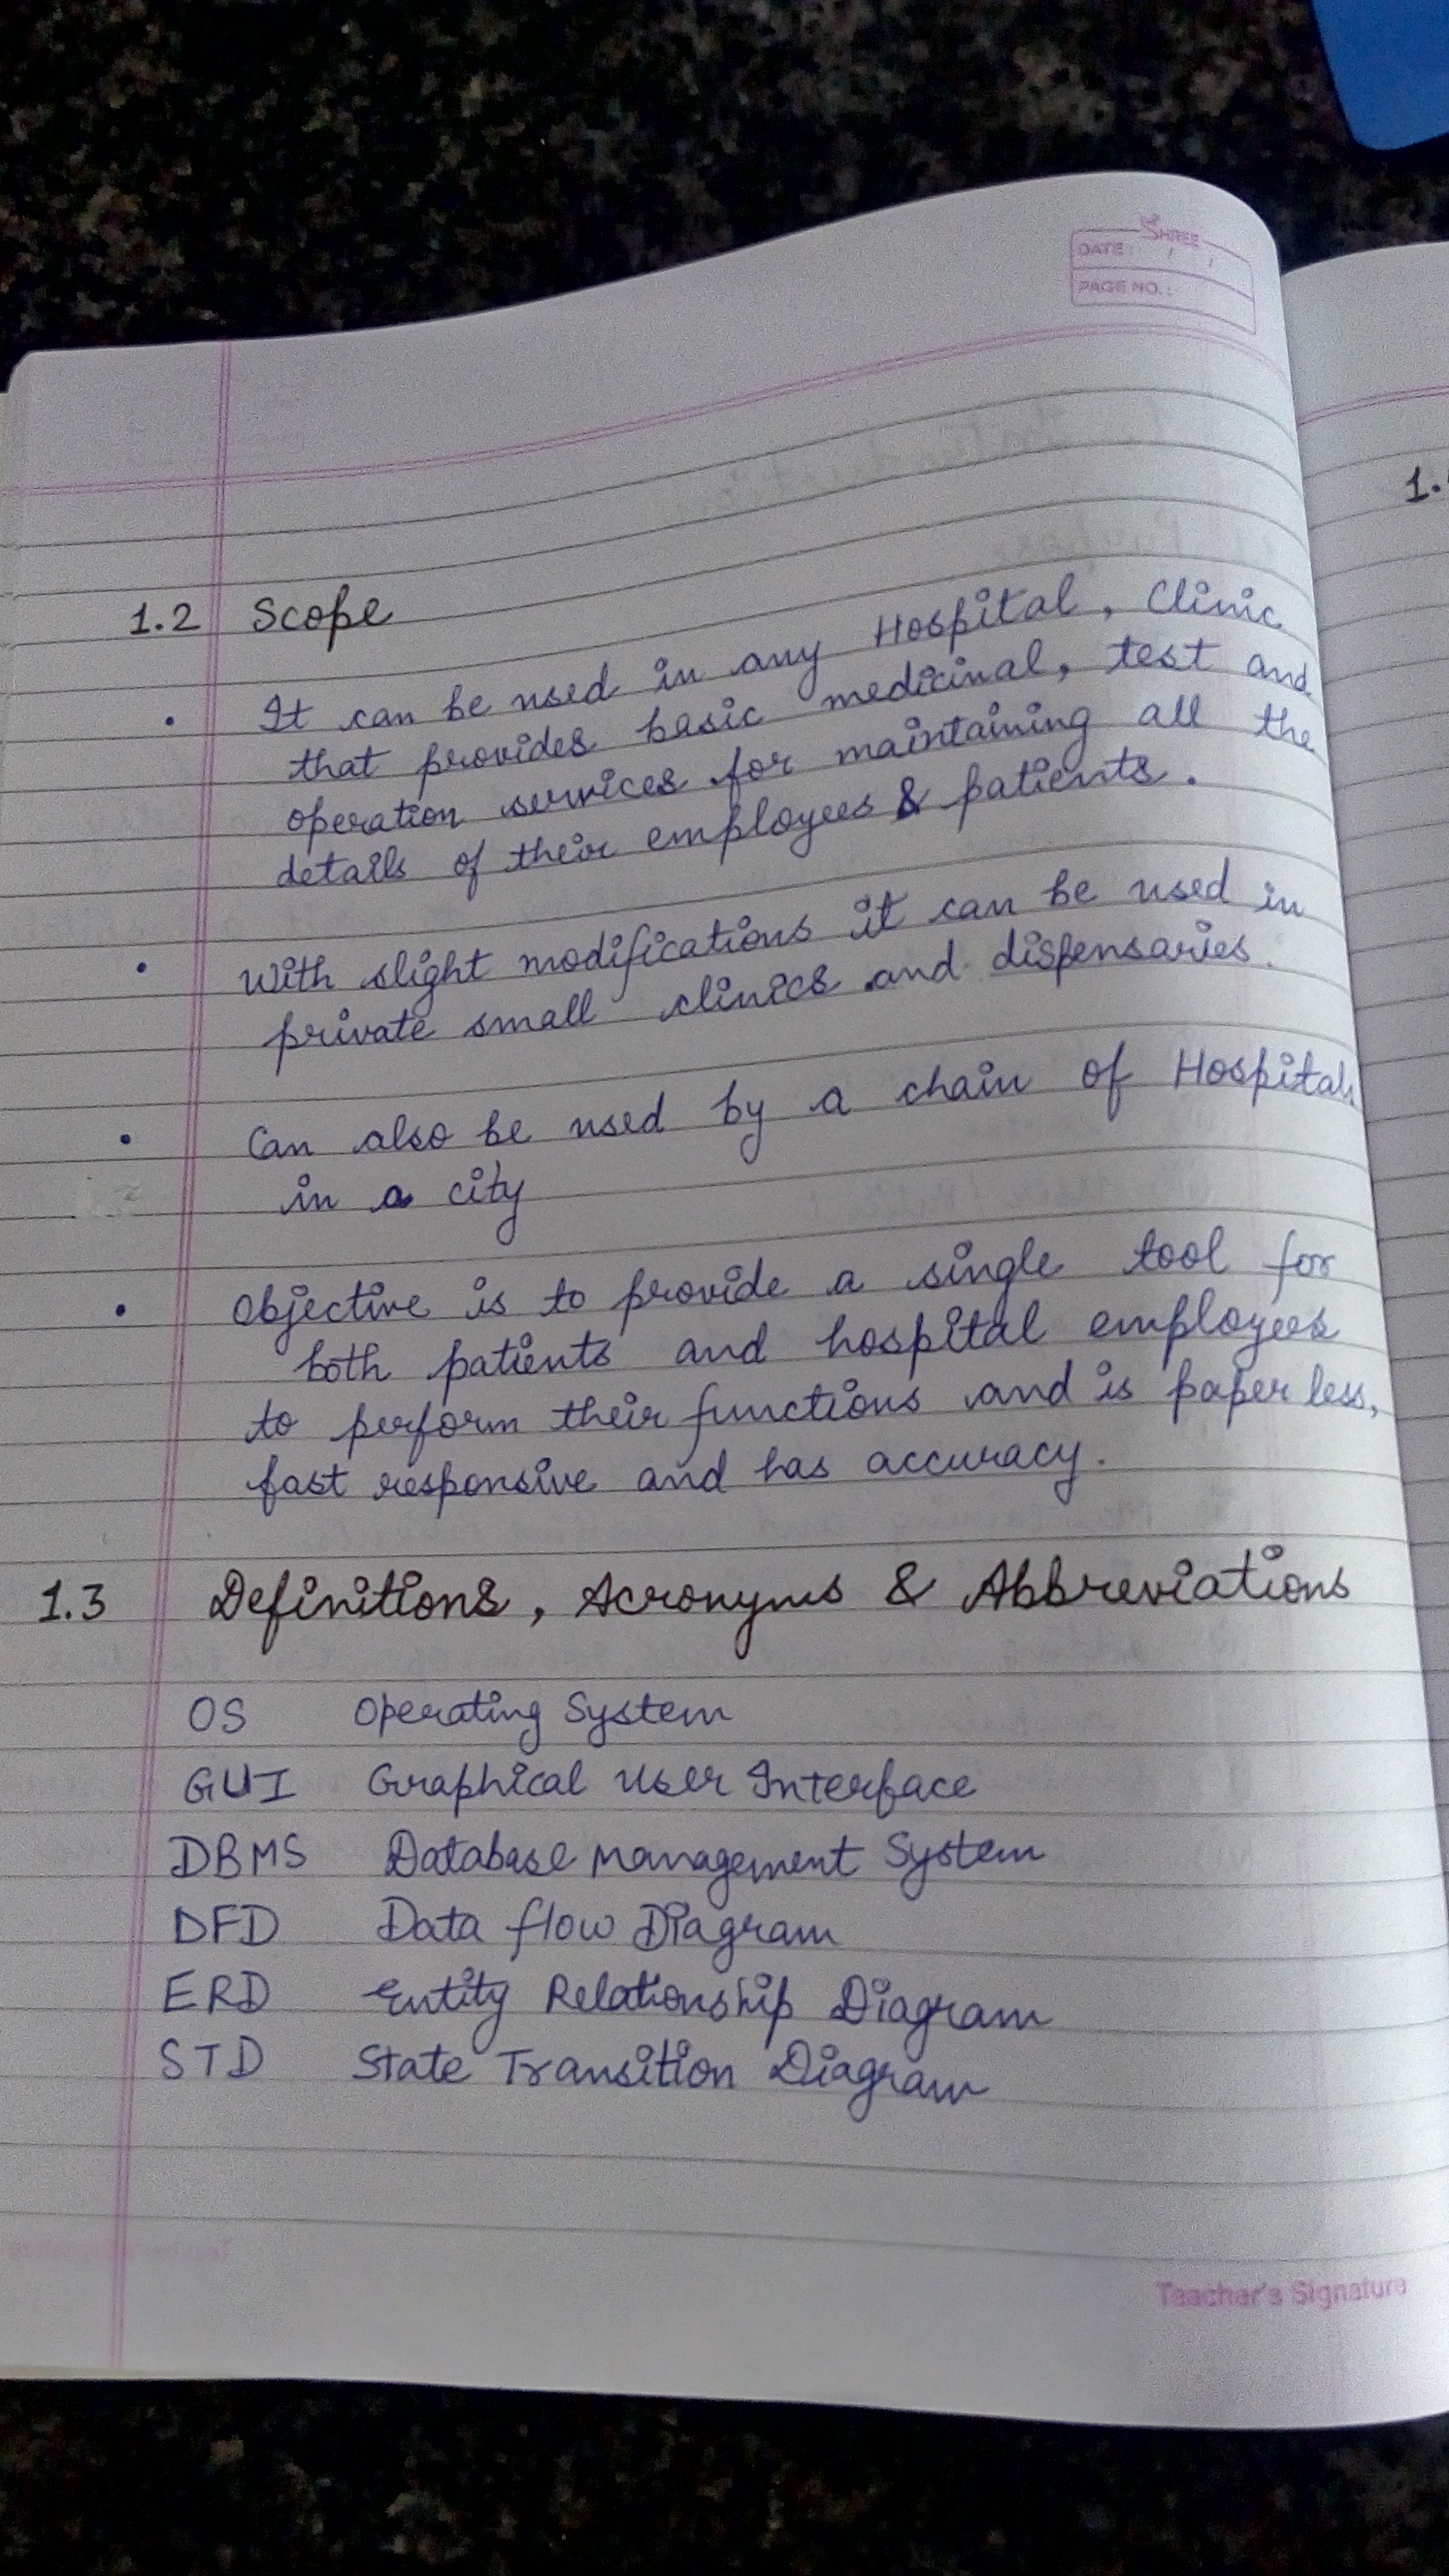 SHREE
DATE: / /
PAGE NO.:
1.2 Scope
• It can be used in any Hospital, Clinic
that provides basic medicinal, test and
operation services for maintaining all the
details of their employees & patients.
• With slight modifications it can be used in
private small clinics and dispensaries.
• Can also be used by a chain of Hospitals
in a city
• Objective is to provide a single tool for
both patients and hospital employees
to perform their functions and is paper less,
fast responsive and has accuracy.
1.3 Definitions, Acronyms & Abbreviations
OS Operating System
GUI Graphical User Interface
DBMS Database Management System
DFD Data flow Diagram
ERD Entity Relationship Diagram
STD State Transition Diagram
Teacher's Signature